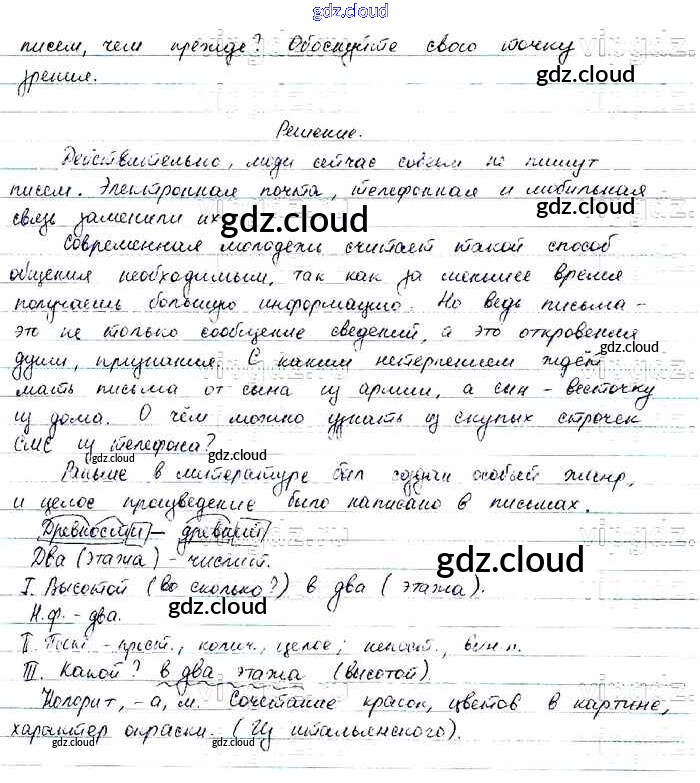 gdz.cloud
писем, чем прежде? Обоснуйте свою точку
зрения.
gdz.cloud
Решение.
Действительно, люди сейчас совсем не пишут
писем. Электронная почта, телефонная и мобильная
связь заменили их.
gdz.cloud
Современная молодежь считает такой способ
общения необходимым, так как за меньшее время
получаешь большую информацию. Но ведь письма –
gdz.cloud
это не только сообщение сведений, а это откровения
души, признания. С каким нетерпением ждёт
gdz.cloud
мать письма от сына из армии, а сын – весточку
gdz.cloud
из дома. О чём можно узнать из скупых строчек
СМС из телефона?
gdz.cloud
Раньше в литературе был создан особый жанр,
и целое произведение было написано в письмах.
gdz.cloud
Древности – древний
Два (этажа) – числит.
gdz.cloud
I. Высотой (во сколько?) в два (этажа).
Н.ф. – два.
gdz.cloud
II. Пост. – прост., колич., целое; непост. – вин. п.
III. Какой? в два этажа (высотой)
gdz.cloud
Колорит, -а, м. Сочетание красок, цветов в картине,
характер окраски. (Из итальянского).
gdz.cloud gdz.cloud